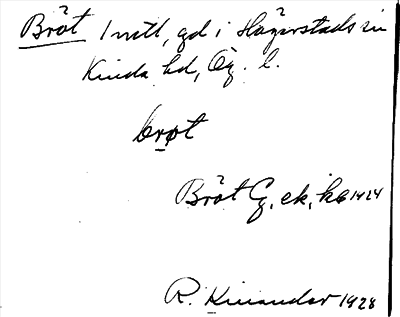 Bröt 1 mtl, gd i Hägerstads sn
Kinda hd, Ög. l.
brøt
Bröt Cg, ek, hc 1424
R. Kinander 1928